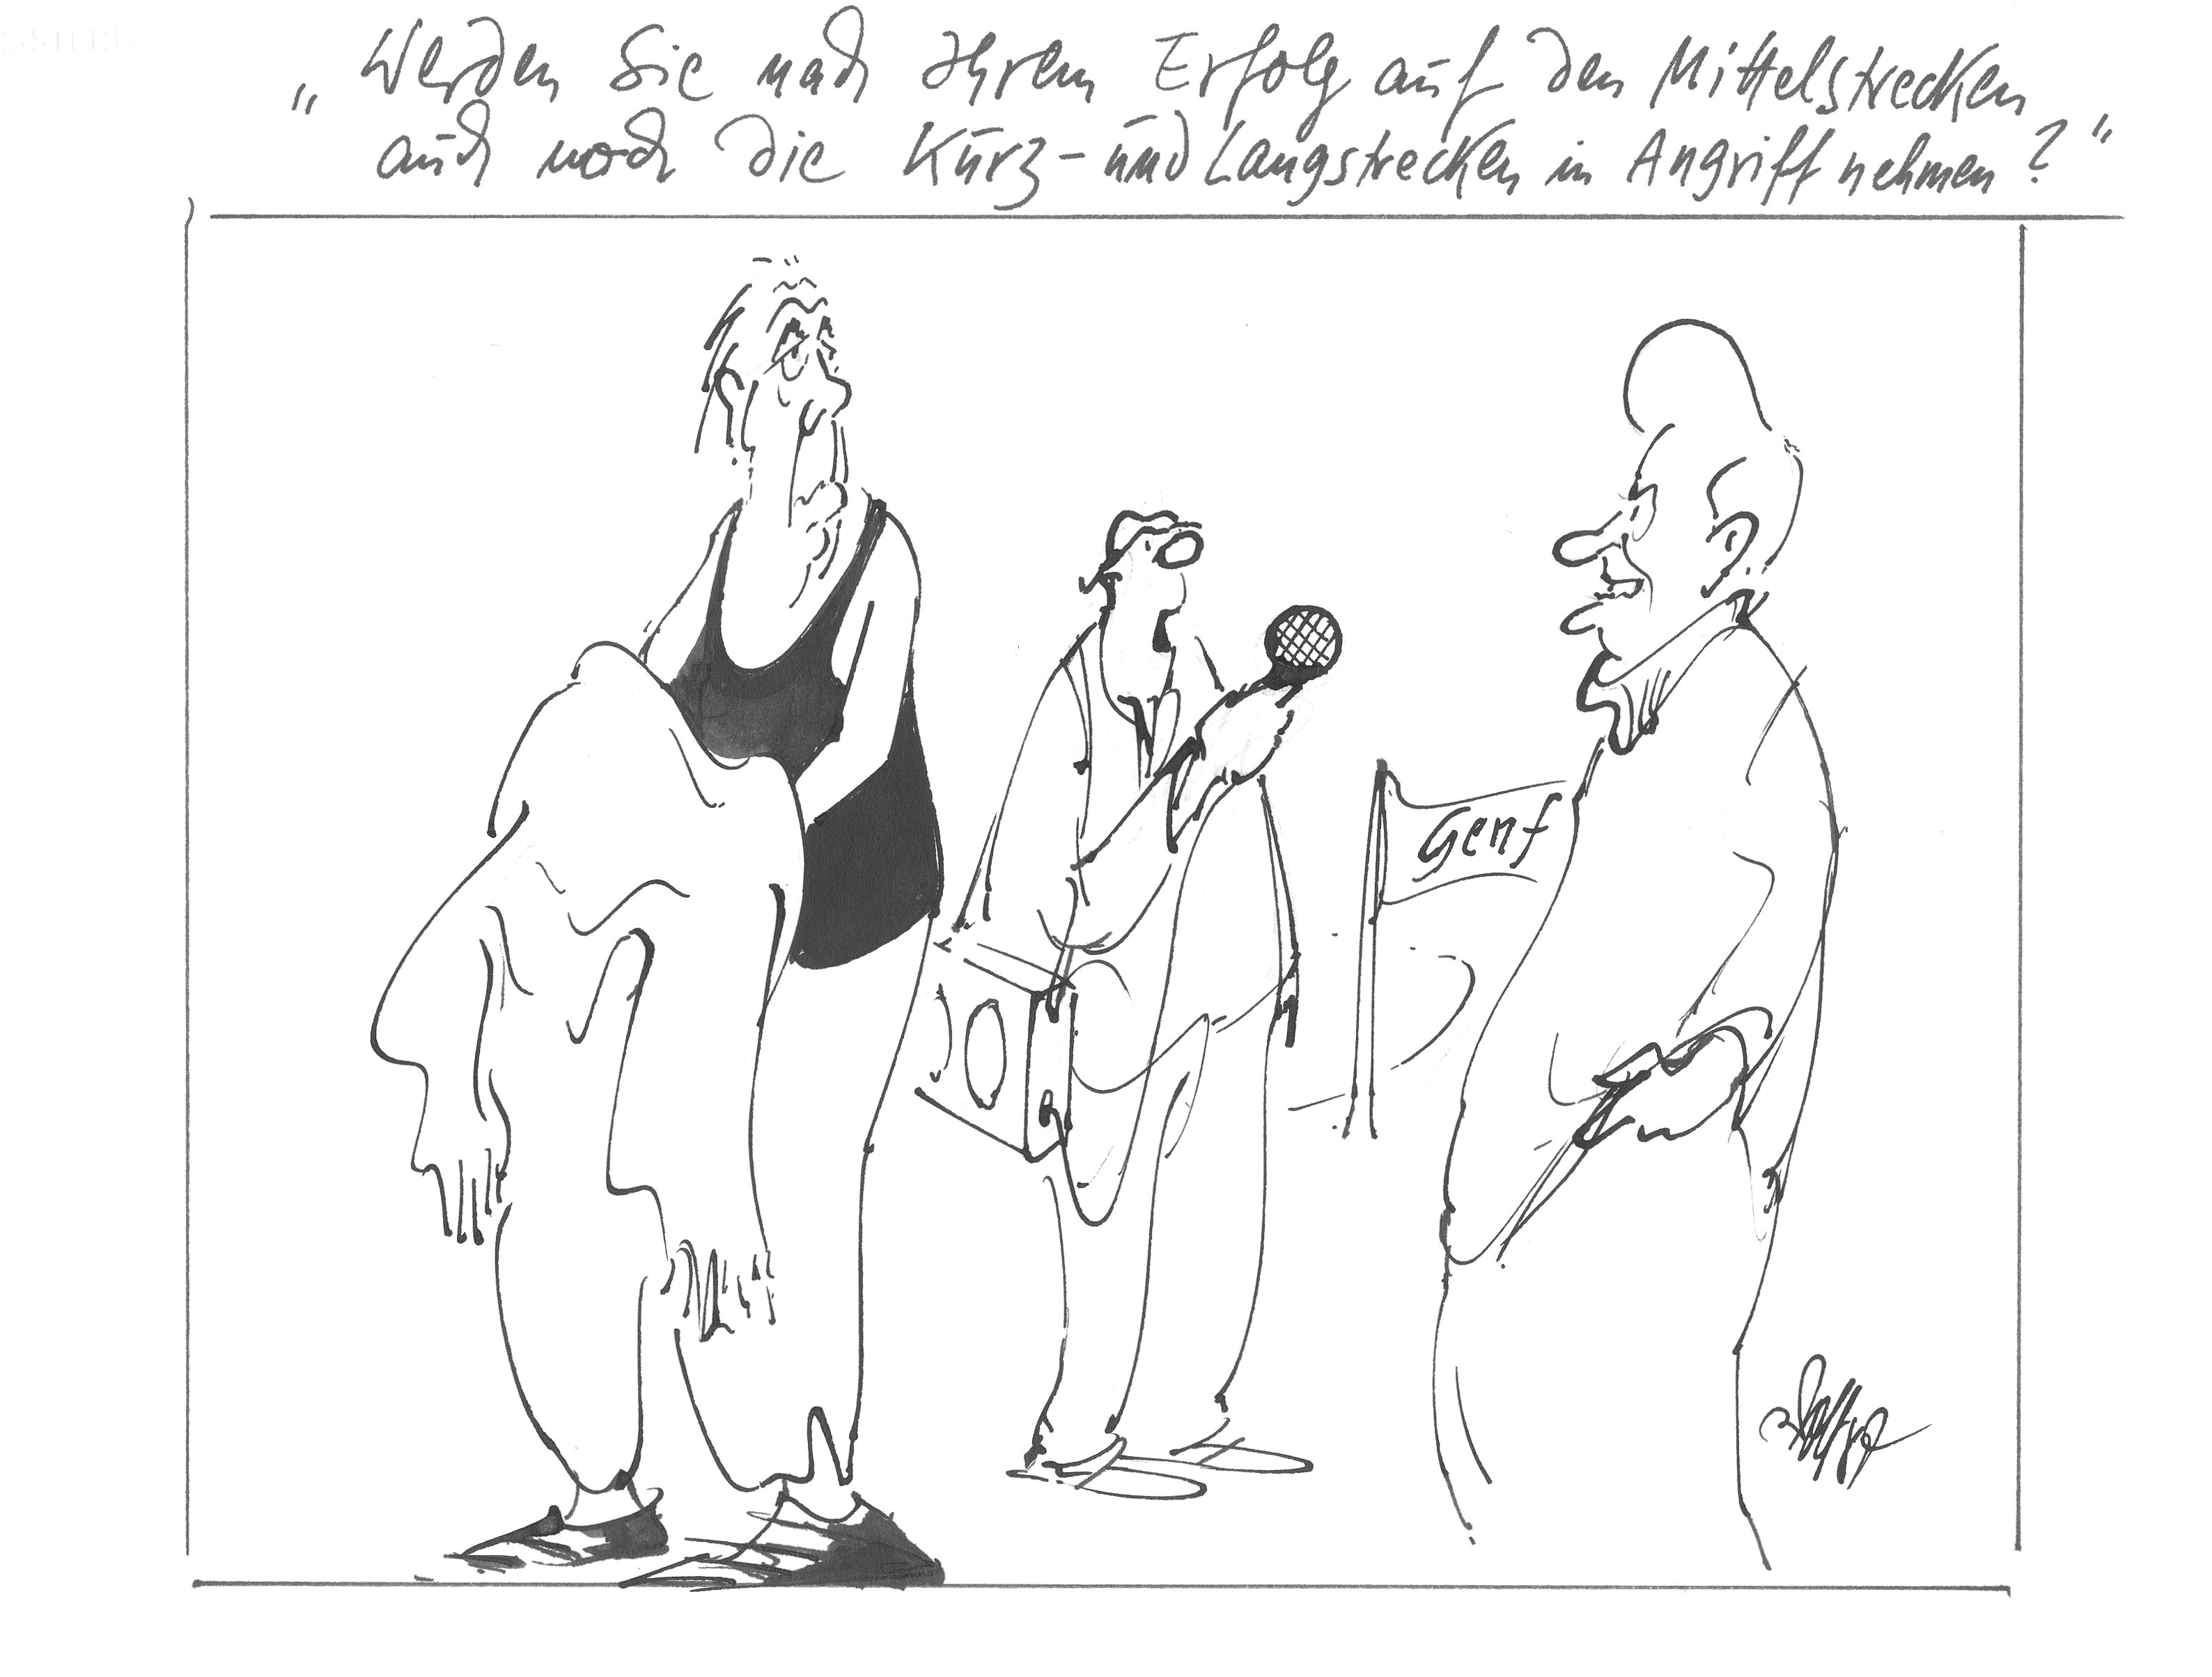 „Werden Sie nach Ihrem Erfolg auf den Mittelstrecken
auch noch die Kurz- und Langstrecken in Angriff nehmen?"
Genf